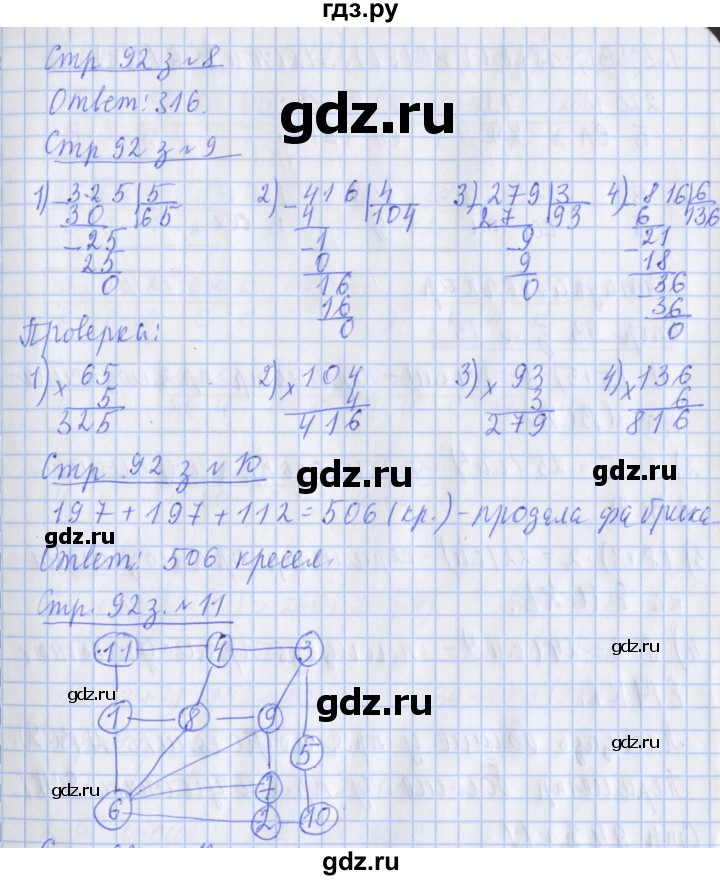 гдз.ру
Стр 92 з №8
Ответ: 316.
gdz.ru
Стр 92 з №9
1) - 325 | 5
30 65
- 25
25
0
2) - 416 | 4
4 104
- 1
0
16
16
0
3) - 279 | 3
27 93
- 9
9
0
4) - 816 | 6
6 136
- 21
18
- 36
36
0
Проверка:
1) × 65
5
325
2) × 104
4
416
3) × 93
3
279
4) × 136
6
816
gdz.ru
gdz.ru
gdz.ru
Стр. 92 з №10
gdz.ru
gdz.ru
197 + 197 + 112 = 506 (кр.) - продала фабрика
Ответ: 506 кресел.
Стр. 92 з. №11
11 4 3
gdz.ru
gdz.ru
gdz.ru
1 8 9
gdz.ru
5
gdz.ru
7
6 2 10
gdz.ru
gdz.ru